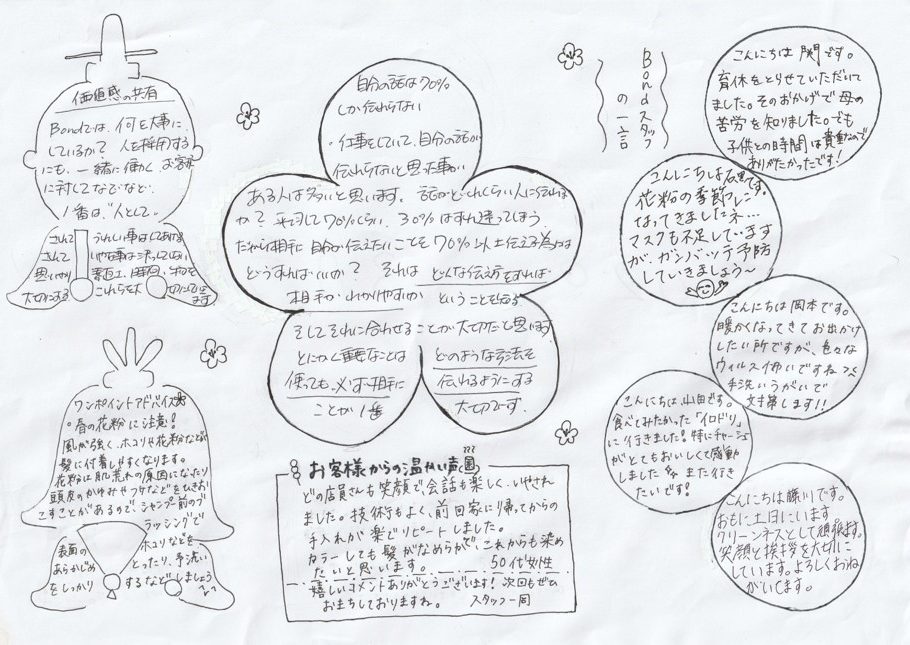 価値感の共有
Bondでは、何を大事に
しているか？ 人を採用する
にも、一緒に働く、お客様
に対してなどなど、
1番は、"人として、
されて うれしい事はしてあげる
されて いやな事は
思いやり 素直
大切にする これらを大切にしてい
ます
ワンポイントアドバイス
・春の花粉に注意！
風が強く、ホコリや花粉などが
髪に付着しやすくなります。
花粉は肌荒れの原因になったり
頭皮のかゆみやフケなどをひきおこ
すことがあるので、シャンプー前のブ
ラッシングで
表面の ホコリなどを
あらかじめ とったり、予洗い
をしっかり するなどしましょう〜
自分の話は70%
しか伝わらない
・仕事をしていて、自分の話が
伝わらないと思った事が
ある人は多いと思います。話がどれくらい人に伝われば
か？ 平均して70%くらい、30%はすれ違ってしまう
だから相手に自分が伝えたいことを70%以上伝える為には
どうすればいいか？ それは どんな伝え方をすれば
相手がわかりやすいか ということを
そしてそれに合わせることが大切だと思います
とにかく重要なことは どのような方法を
使っても、必ず相手に 伝わるようにする
ことが1番 大切です。
お客様からの温かい声
どの店員さんも笑顔で会話も楽しく、いやされ
ました。技術もよく、前回家に帰ってからの
手入れが楽でリピートしました。
カラーしても髪がなめらかで、これからも染め
たいと思います。 50代女性
嬉しいコメントありがとうございます！次回もぜひ
おまちしておりますね。 スタッフ一同
Bondスタッフ
の一言
こんにちは 関です。
育休をとらせていただいて
ました。そのおかげで母の
苦労を知りました。でも
子供との時間は貴重なので
ありがたかったです！
こんにちは石黒です。
花粉の季節に
なってきましたネ…
マスクも不足しています
が、ガンバッテ予防
していきましょう〜
こんにちは岡本です。
暖かくなってきてお出かけ
したい所ですが、色々な
ウィルス怖いですね
手洗いうがいで
対策します!!
こんにちは山田です。
食べてみたかった「イロドリ」
に行きました！特にチャーシュー
がとてもおいしくて感動
しました また行き
たいです！
こんにちは藤川です。
おもに土日にいます
クリーンネスとして頑張ります。
笑顔と挨拶を大切に
しています。よろしくおね
がいします。